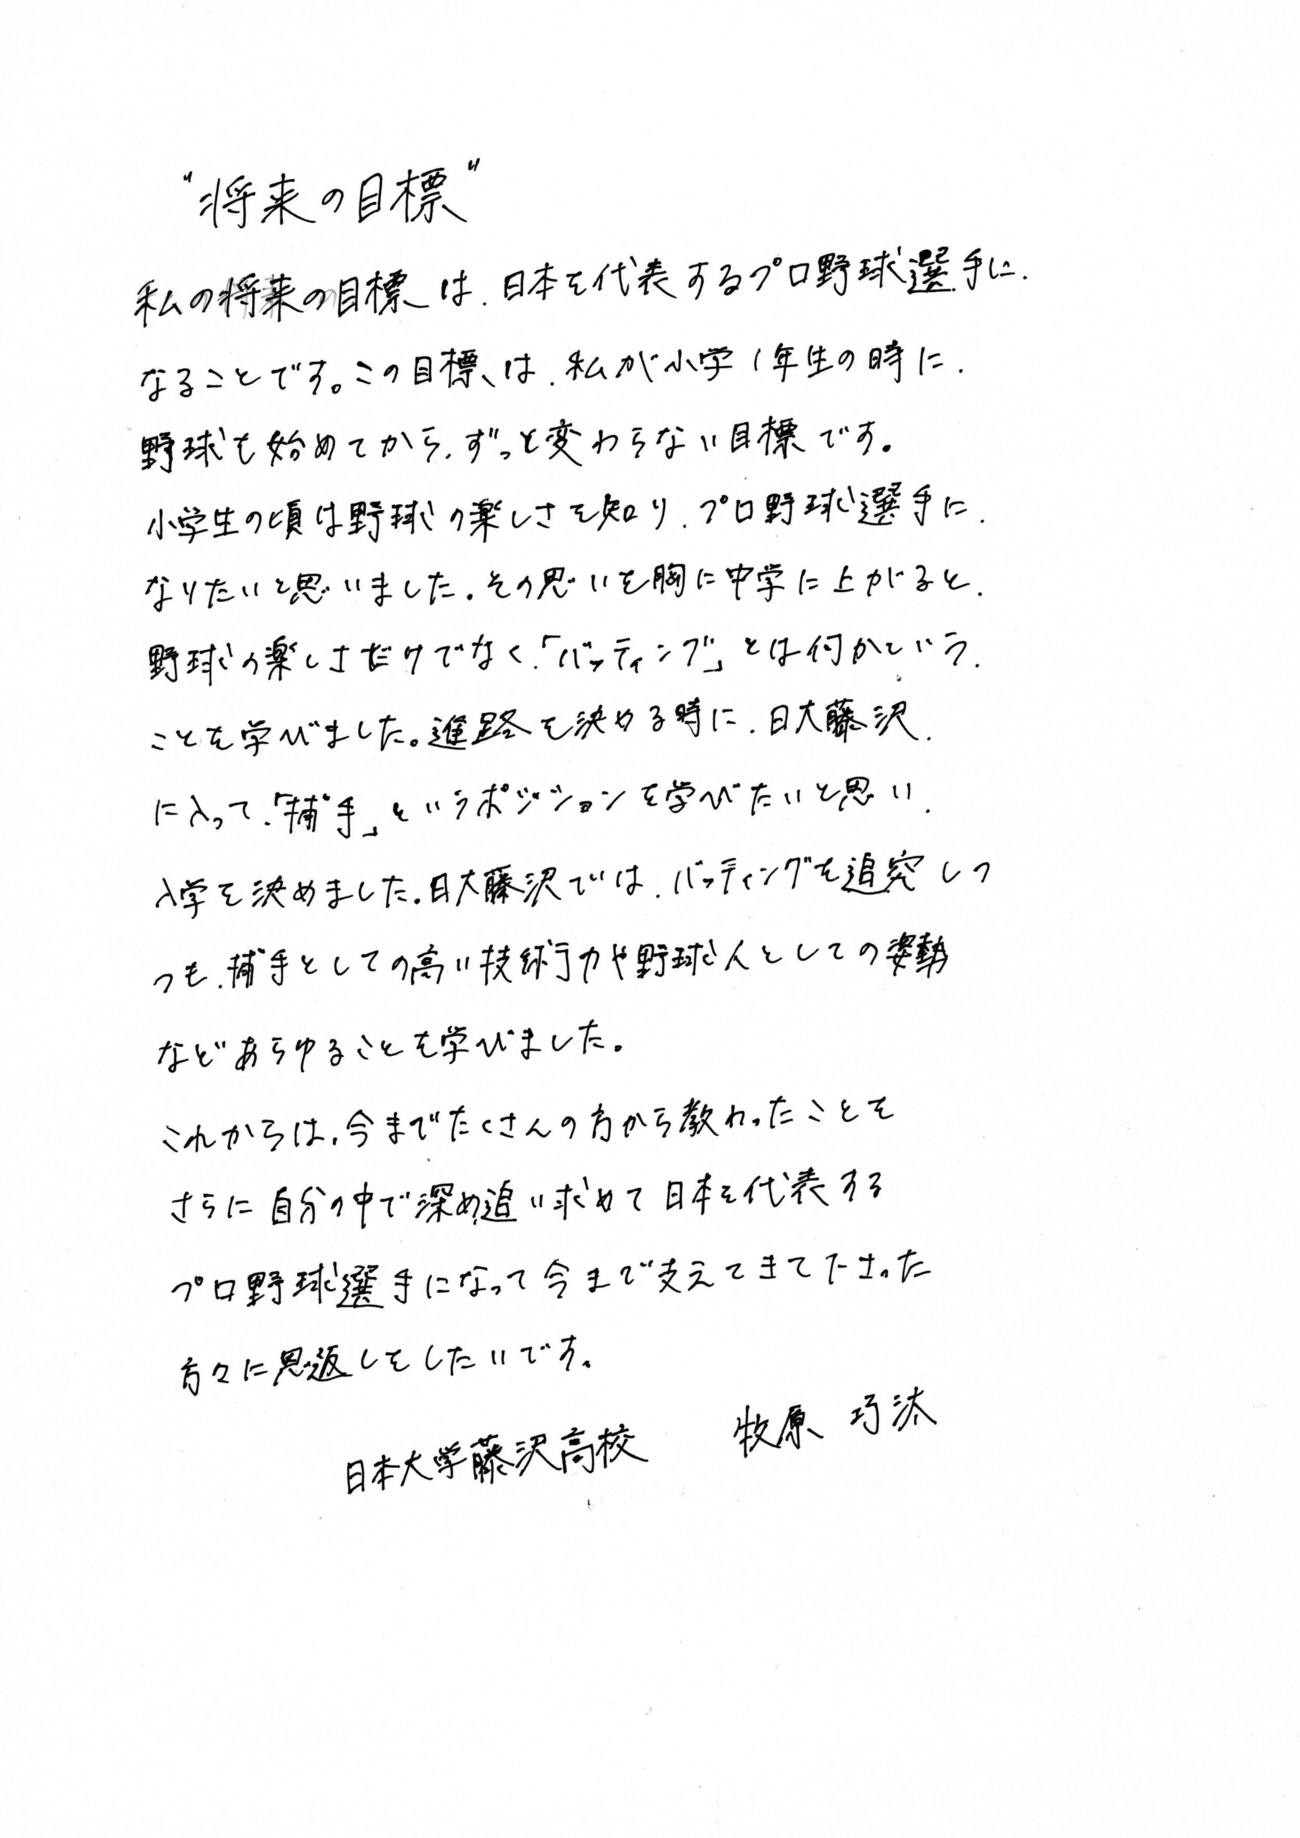 "将来の目標"
私の将来の目標は、日本を代表するプロ野球選手に、
なることです。この目標は、私が小学1年生の時に、
野球を始めてから、ずっと変わらない目標です。
小学生の頃は野球の楽しさを知り、プロ野球選手に、
なりたいと思いました。その思いを胸に中学に上がると、
野球の楽しさだけでなく、「バッティング」とは何かという、
ことを学びました。進路を決める時に、日大藤沢、
に入って、「捕手」というポジションを学びたいと思い、
入学を決めました。日大藤沢では、バッティングを追究しつ
つも、捕手としての高い技術力や野球人としての姿勢
などあらゆることを学びました。
これからは、今までたくさんの方から教わったことを
さらに自分の中で深め追い求めて日本を代表する
プロ野球選手になって今まで支えてきて下さった
方々に恩返しをしたいです。
日本大学藤沢高校 牧原 巧汰